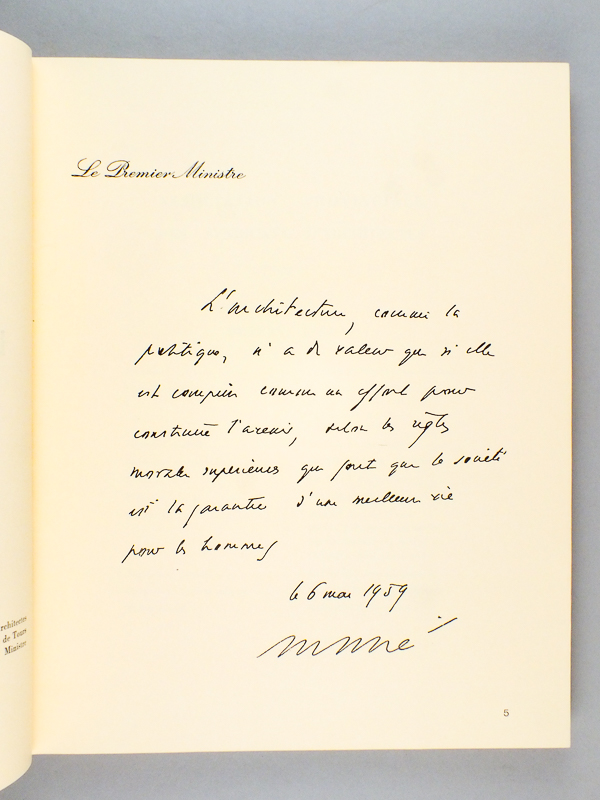 Le Premier Ministre
L'architecture, comme la
politique, n'a de valeur que si elle
est comprise comme un effort pour
construire l'avenir, selon les règles
morales supérieures qui font que la société
est la garantie d'une meilleure vie
pour les hommes
le 6 mai 1959
rchitectes
de Tours
Ministre
5